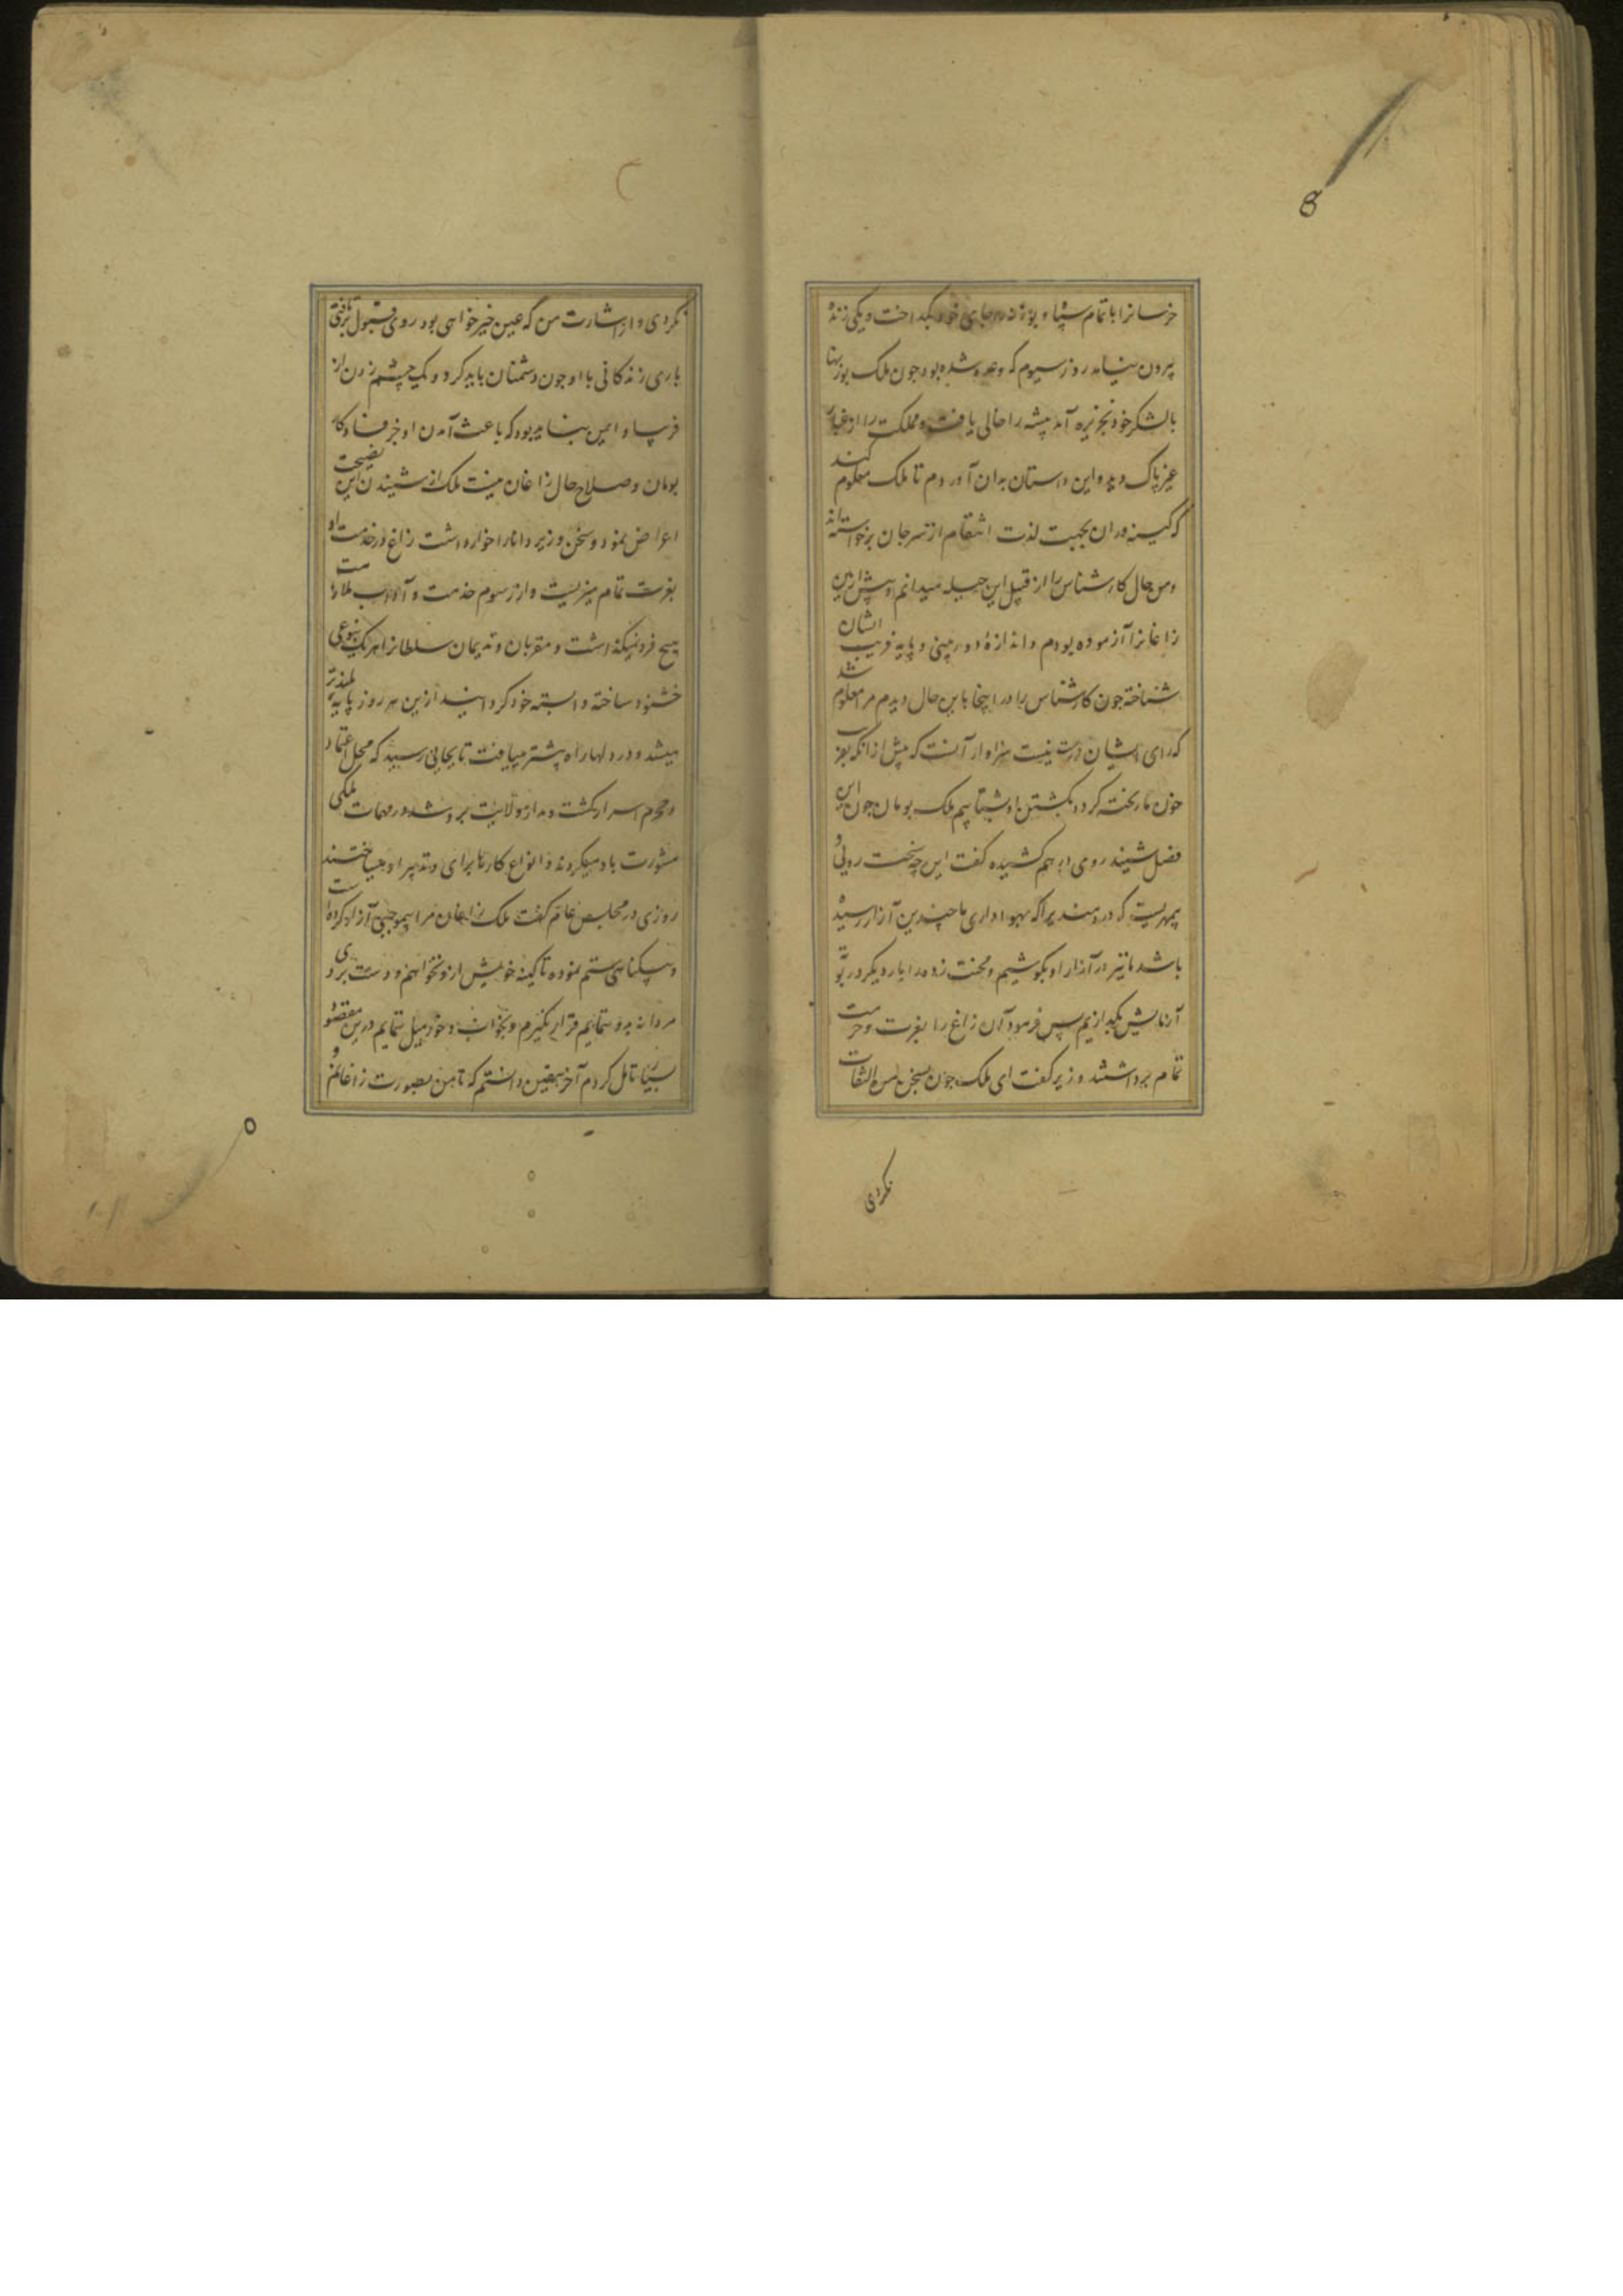 خرسانرا با تمام سپاه بوزنه در جای خود بگداخت و یکی زنده
بیرون نیامد روز سیوم که وعده شده بود جون ملک بوزینها
با لشکر خود بجزیره آمد بیشه را خالی یافت و مملکت را از غبار
غیر پاک دید و این داستان بدان آوردم تا ملک معلوم کند
که کینه وران بجهت لذت انتقام از سر جان برخواسته اند
و من حال کارشناس را از قبیل این حیله میدانم و پیش ازین
زاغانرا آزموده بودم و اندازۀ دوربینی و پایه فریب ایشان
شناخته جون کارشناس را در اینجا باین حال دیدم مرا معلوم شد
که رای ایشان درست نیست سزاوار آنست که پیش از آنکه
خون ما ریخته کردد بکشتن او شتابیم ملک بومان جون این
فصل شنید روی درهم کشیده گفت این چه سخت رویی و
بیمهریست که دردمندیرا که بهواداری ما چندین آزار رسیده
باشد ما نیز در آزار او بکوشیم و محنت زده را بار دیگر در بوته
آزمایش بگدازیم پس فرمود آن زاغ را بعزت و حرمت
تمام برداشتند وزیر گفت ای ملک جون بسخن من التفات
نکردی
نکردی و از اشارت من که عین خیرخواهی بود روی قبول برتافتی
باری زندگانی با او جون دشمنان باید کرد و یک چشم زدن از
فریب او ایمن نباید بود که باعث آمدن او جز فساد کار
بومان و صلاح حال زاغان نیست ملک از شنیدن این نصیحت
اعراض نمود و سخن وزیر دانا را خوار داشت زاغ در خدمت او
بعزت تمام میزیست و از رسوم خدمت و آداب ملازمت
هیچ فرو نمیگذاشت و مقربان و ندیمان سلطانرا هر یک بنوعی
خشنود ساخته وابسته خود گردانید ازین هر روز پایه بلندتر
میشد و در دلها راه بیشتر مییافت تا بجایی رسید که محل اعتماد
و محرم اسرار کشت و مدار ولایت برو شد در مهمات ملکی
مشورت با او میکردند و انواع کارها برای و تدبیر او میساختند
روزی در مجلس عام گفت ملک زاغان مرا بیموجبی آزار کرده است
و بیگناهی ستم نموده تا کینه خویش ازو نخواهم و دست بردی
مردانه بدو ننمایم قرار نگیرم و بخواب و خور میل ننمایم درین مقصود
بسی تامل کردم آخر بیقین دانستم که تا من بصورت زاغانم و